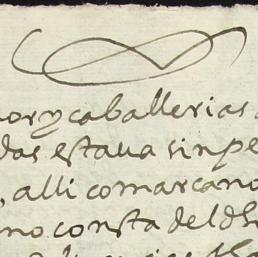 or y caballerias
das estaua sin pe
, alli comarcano
no consta del dh